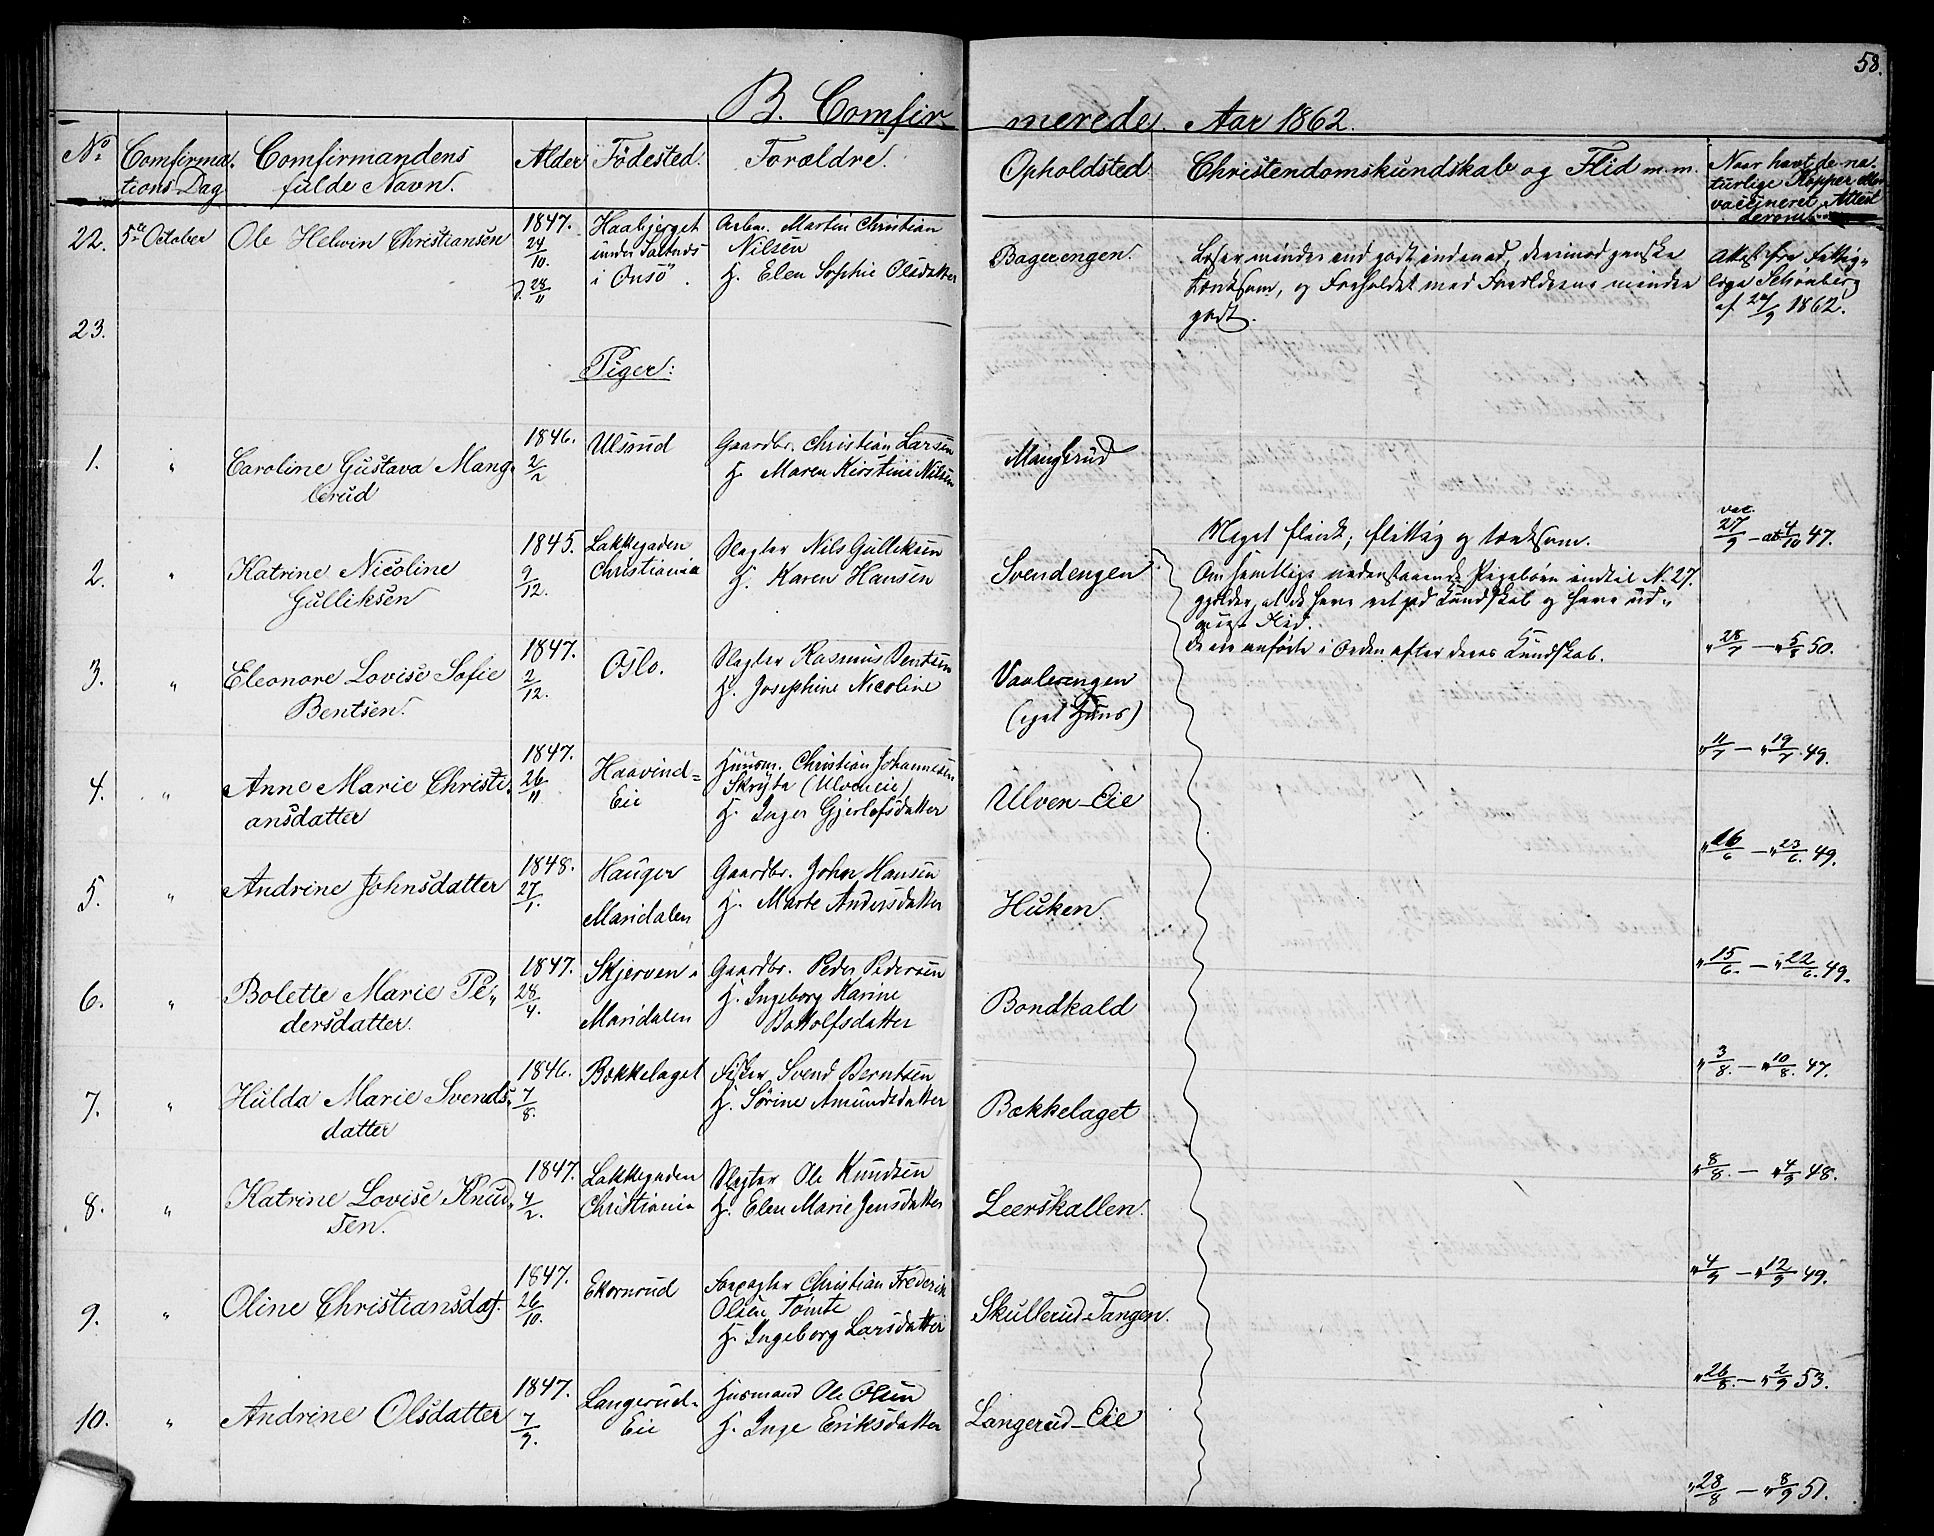 58.
B. Comfirmerede. Aar 1862.
No. Comfirmations Dag. Comfirmandens fulde Navn. Alder Födested. Forældre. Opholdsted Christendomskundskab og Flid m.m. Naar havt de naturlige Kopper eller vaccineret Attest derom
22. 5te October Ole Helvin Christiansen 1847. 24/10. d. 28/11
Haabjerget under Saltnes i Onsö.
Arbm. Martin Christian
Nilsen
H. Elen Sophie Olsdatter
Bagerengen.
Læser mindre end godt indenad, derimod ganske
tænksom, og Forholdet med Forældrene mindre
godt.
Attest fra Fattig-
læge Schönberg
af 24/9 1862.
23.
Piger:
1. " Caroline Gustava Mang-
lerud
1846. 2/2
Ulsrud
Gaardbr. Christian Larsen
H. Maren Kirstine Nilsen
Manglerud
Meget flink, flittig og tænksom.
vac. 27/9 – at. 4/10 47.
2. " Katrine Nicoline
Gulliksen
1845. 9/12.
Lakkegaden
Christiania
Slagter Nils Gulliksen
H. Karen Hansen
Svendengen
Om samtlige nedenstaaende Pigebörn indtil N. 27.
gjælder, at de have ret god Kundskab og have ud-
viist Flid.
De ere anförte i Orden efter deres Kundskab.
" 28/7 – " 5/8 50.
3. " Eleonore Lovise Sofie
Bentsen.
1847. 2/12.
Oslo.
Slagter Rasmus Bentsen
H. Josephine Nicoline
Vaalerengen
(eget Huus)
" 11/7 – " 19/7. 49.
4. " Anne Marie Christi-
ansdatter
1847. 26/11
Haavind=
Eie
Huusm. Christian Johannesen
Skryta (Ulveneie)
H. Inger Gjerlofsdatter
Ulven-Eie
" 16/6 – " 23/6. 49.
5. " Andrine Johnsdatter
1848. 27/1.
Hauger
Maridalen
Gaardbr. John Hansen
H. Marte Andersdatter
Huken.
" 15/6. – " 22/6. 49.
6. " Bolette Marie Pe-
dersdatter.
1847. 28/4.
Skjerven i
Maridalen
Gaardbr. Peder Pedersen
H. Ingeborg Karine
Botholfsdatter
Bondkald
" 3/8. – " 10/8. 47.
7. " Hulda Marie Svends-
datter
1846. 7/8.
Bækkelaget
Fisker Svend Berntsen
H. Sörine Amundsdatter
Bækkelaget
" 8/8. – " 4/9 48.
8. " Katrine Lovise Knud-
sen.
1847. 4/2.
Lakkegaden
Christiania
Slagter Ole Knudsen
H. Elen Marie Jensdatter
Leerskallen.
" 4/9 – " 12/9 49.
9. " Oline Christiansdat.
1847. 26/10.
Ekornrud
Forpagter Christian Frederik
Olsen Tömte
H. Ingeborg Larsdatter
Skullerud-Tangen.
" 26/8. – " 2/9 53.
10. " Andrine Olsdatter
1847. 7/9.
Langerud-
Eie
Husmand Ole Olsen
H. Inge Eriksdatter
Langerud-Eie
" 28/8 – " 8/9 51.